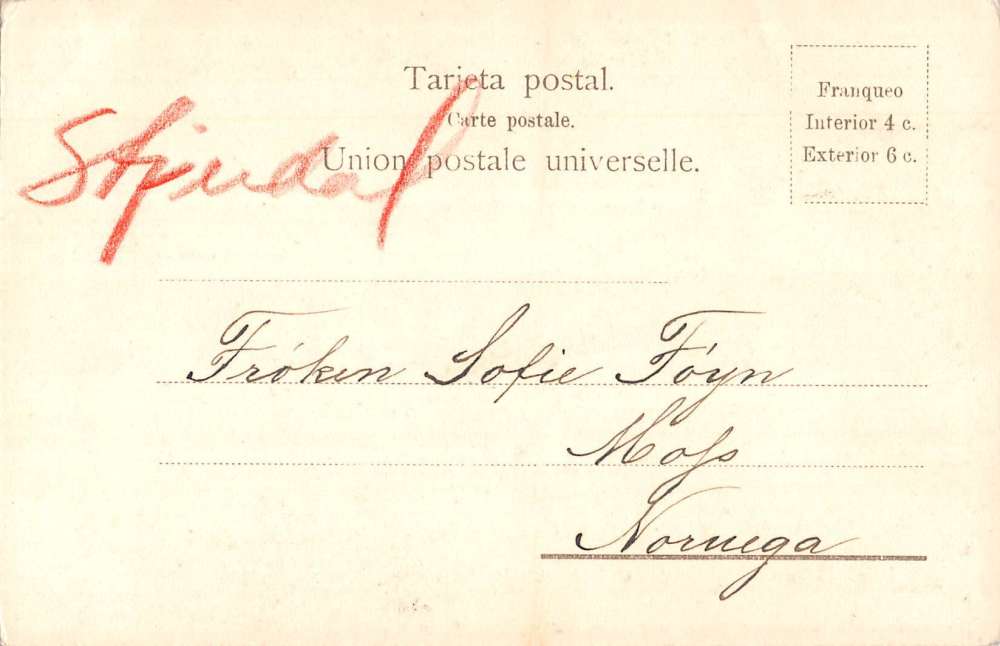 Tarjeta postal.
Carte postale.
Union postale universelle.
Franqueo
Interior 4 c.
Exterior 6 c.
Fróken Sofie Föyn
Moſs
Noruega